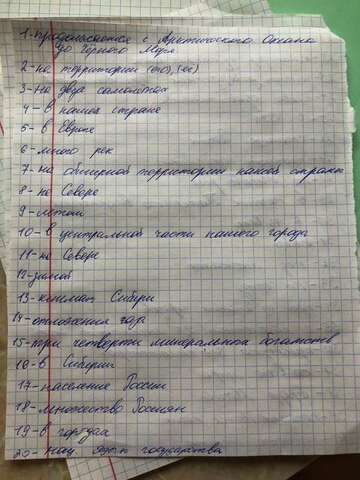 1-продолжается с Арктического Океана
до Чёрного Моря
2-на территории (его), (ее)
3-На двух самолётах
4-в нашей стране
5-в Европе
6-много рек
7-на обширной территории нашей страны
8-на Севере
9-летом
10-в центральной части нашего города
11-на Севере
12-зимой
13-климат Сибири
14-отложения газа
15-три четверти минеральных богатств
16-в Сибири
17-население России
18-множество Россиян
19-в городах
20-Нац. язык государства